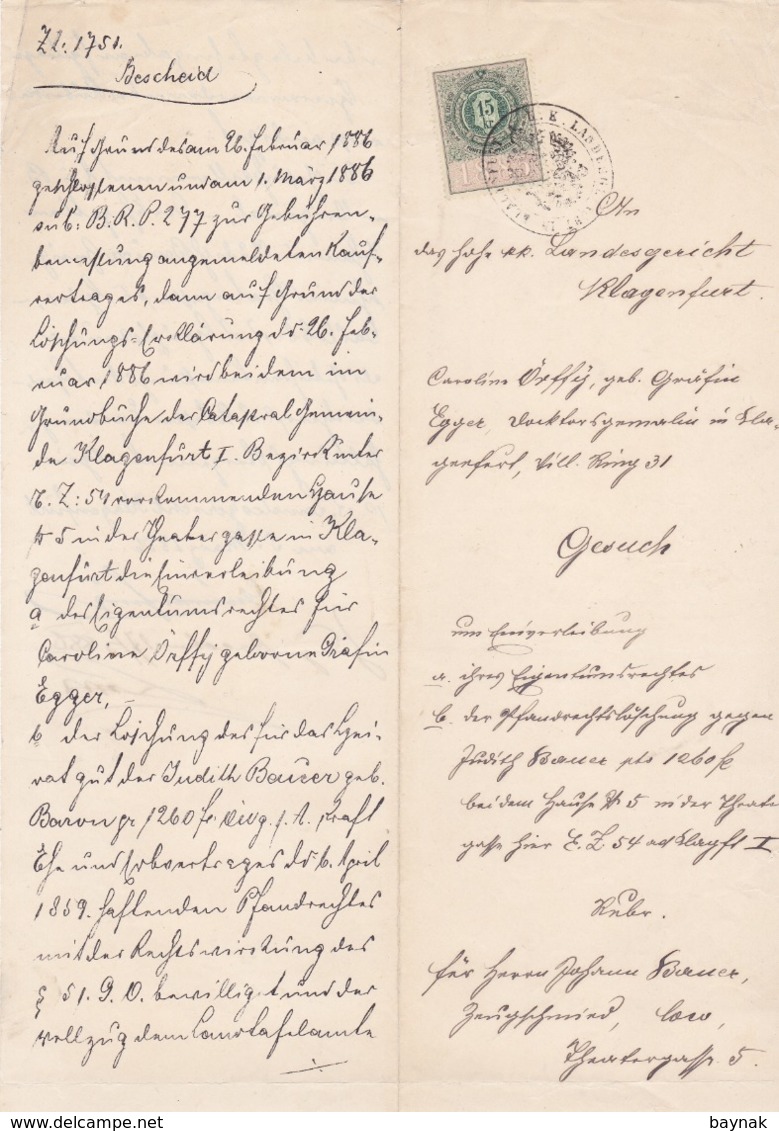 Zl: 1751.
Bescheid
Auf Grund des am 26. Februar 1886
geschlossenen und am 1. März 1886
sub: B. R. P. 277 zur Gebühren-
bemessung angemeldeten Kauf-
vertrages, dann auf Grund der
Löschungs-Erklärung dd: 26. Feb-
ruar 1886 wird bei dem im
Grundbuche der Catastral Gemein-
de Klagenfurt I. Bezirk unter
E. Z: 54 vorkommenden Hause
№ 5 in der Theatergasse in Kla-
genfurt die Einverleibung
a des Eigentumsrechtes für
Caroline Örffÿ geborne Gräfin
Egger, –
b der Löschung des für das Hei-
rat gut der Judith Bauer geb.
Baron pr 1260 fr. s. A. kraft
Ehe und Erbvertrages dd: 6. April
1859. haftenden Pfandrechtes
mit der Rechtswirkung des
§ 51. G. O. bewilligt und der
Vollzug dem Landtafelamte
15
K. K. LANDES
An
das hohe kk. Landesgericht
Klagenfurt.
Caroline Örffÿ, geb. Gräfin
Egger, Docktorsgemalin in Kla-
genfurt, Vill. Ring 31
Gesuch
um Einverleibung
a. ihres Eigentumsrechtes
b. der Pfandrechtslöschung gegen
Judith Bauer pto 1260 fr
bei dem Hause № 5 in der Theater
gasse hier E. Z. 54 ad Klagft I
Rubr.
für Herrn Johann Bauer,
Zeugschmied, loco,
Theatergasse 5.
baynak